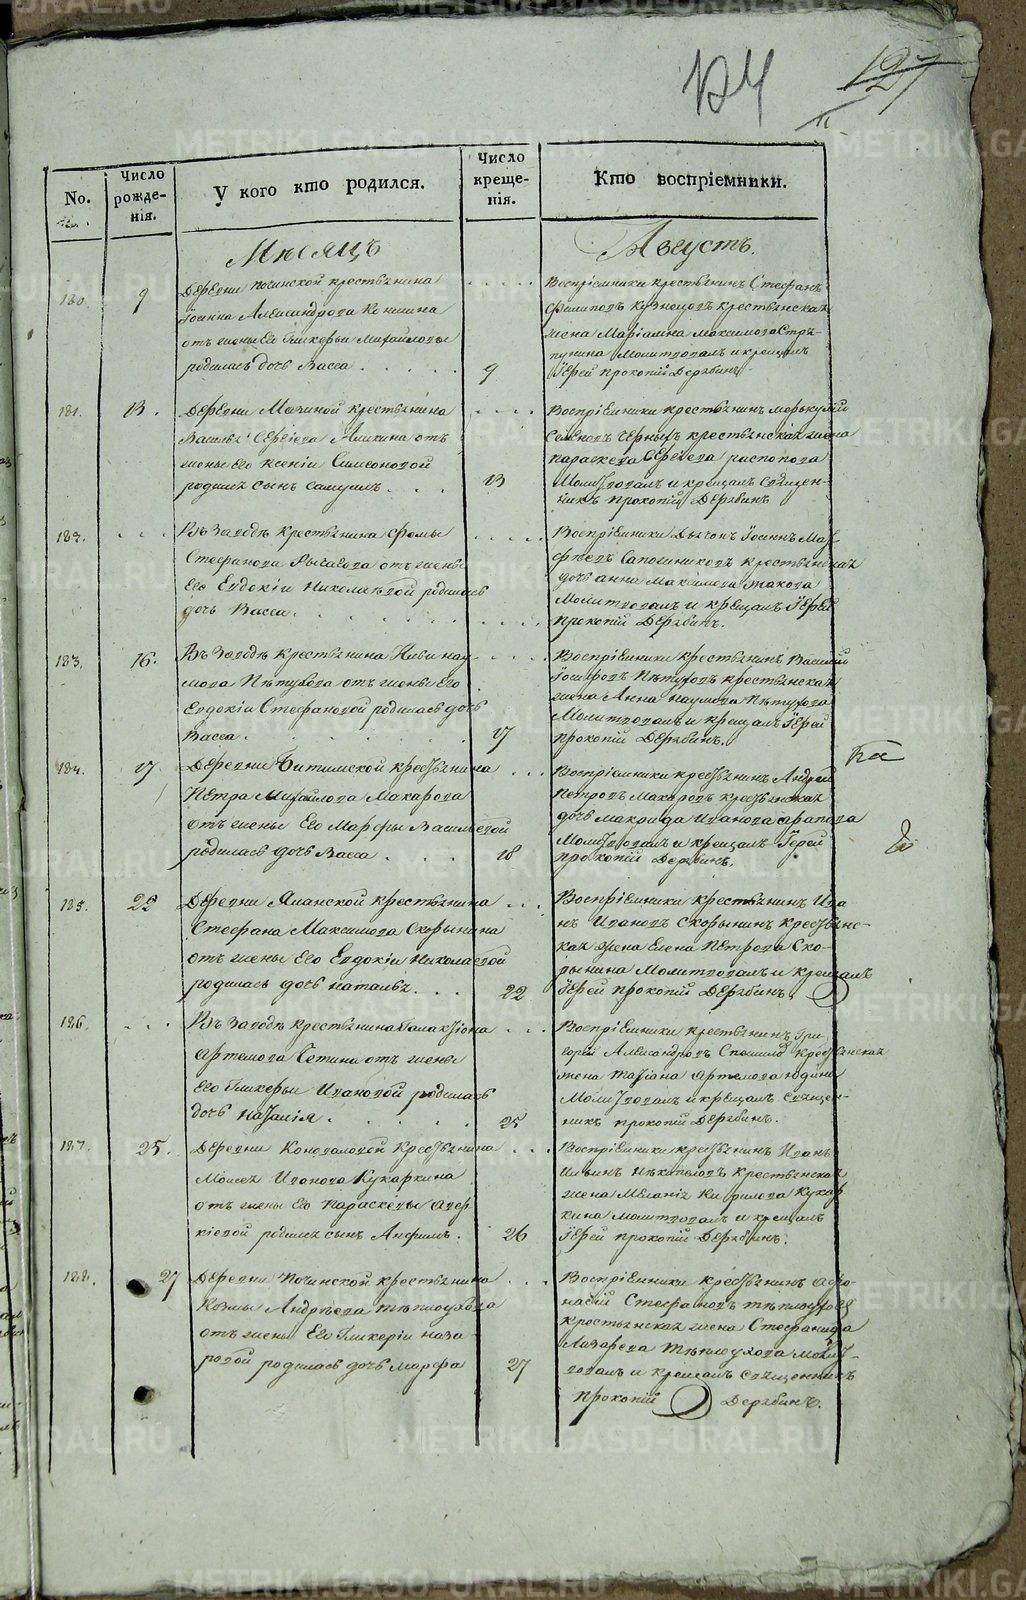 124
127
No.
Число рожденія.
У кого кто родился.
Число крещенія.
Кто воспріемники.
Мѣсяцъ
Августъ.
180.
9
Деревни Починской крестьянина
Іоанна Александрова Коншина
отъ жены его Гликерьи Михайловы
родилась дочь Васса
9
Воспріемники крестьянинъ Стефанъ
Филиповъ Кузнецовъ крестьянская
жена Маріамна Максимова
Молитвовалъ и крещалъ
Іерей прокопій Дерябинъ
181.
13.
Деревни Мазиной крестьянина
Василья Сергіева Аликина отъ
жены его Ксеніи Симеоновой
родился сынъ Самуилъ
13
Воспріемники крестьянинъ меркурій
Семеновъ Черныхъ крестьянская жена
параскева Сергіева распопова
Молитвовалъ и крещалъ Священ-
никъ прокопій Дерябинъ
182.
Въ Заводѣ крестьянина Фомы
Стефанова отъ жены
Его Евдокіи Николаевой родилась
дочь Васса
Воспріемники Дьячокъ Іоаннъ Мат-
фѣевъ Сапожниковъ крестьянская
дочь анна Максимова
Молитвовалъ и крещалъ Іерей
прокопій Дерябинъ.
183.
16.
Въ Заводѣ крестьянина нау-
мова Пѣтухова отъ жены Его
Евдокіи Стефановой родилась дочь
Васса
17
Воспріемники крестьянинъ Василій
Іосифовъ Пѣтуховъ крестьянская
жена Анна наумова Пѣтухова
Молитвовалъ и крещалъ Іерей
прокопій Дерябинъ.
184.
17
Деревни Битимской крестьянина
Петра Михайлова Макарова
отъ жены Его Марфы Васильевой
родилась дочь Васса
18
Воспріемники крестьянинъ Андрей
Петровъ Макаровъ крестьянская
дочь макрида Иванова арапова
Молитвовалъ и крещалъ Іерей
прокопій Дерябинъ.
185.
22
Деревни Яманской крестьянина
Стефана Максимова Скорынина
отъ жены Его Евдокіи Николаевой
родилась дочь наталья
22
Воспріемники крестьянинъ Ива
нъ Ивановъ Скорынинъ крестьянс-
кая жена Елена Петрова Ско-
рынина Молитвовалъ и крещалъ
Іерей прокопій Дерябинъ
186.
Въ Заводѣ крестьянина Галактіона
Артемова Сетина отъ жены
Его Гликерьи Ивановой родилась
дочь наталія
25
Воспріемники крестьянинъ Гри
горей Александровъ крестьянская
жена Татіана Артемова юдина
Молитвовалъ и крещалъ Священ-
никъ прокопій Дерябинъ.
187.
25.
Деревни Коноваловой крестьянина
Моисея Иванова Кукаркина
отъ жены Его параскевы авер
кіевой родился сынъ Анфимъ.
26
Воспріемники крестьянинъ Иванъ
Ильинъ крестьянская
жена Меланія Кирилова Кукар
кина молитвовалъ и крещалъ
Іерей прокопій Дерябинъ.
188.
27
Деревни Починской крестьянина
Козмы Андрѣева тѣплоухова
отъ жены Его Гликеріи наза-
ровой родилась дочь марфа
27
Воспріемники крестьянинъ афо-
насій Стефановъ тѣплоуховъ
крестьянская жена Стефанида
Лазарева тѣплоухова молит-
вовалъ и крещалъ священникъ
прокопій Дерябинъ.